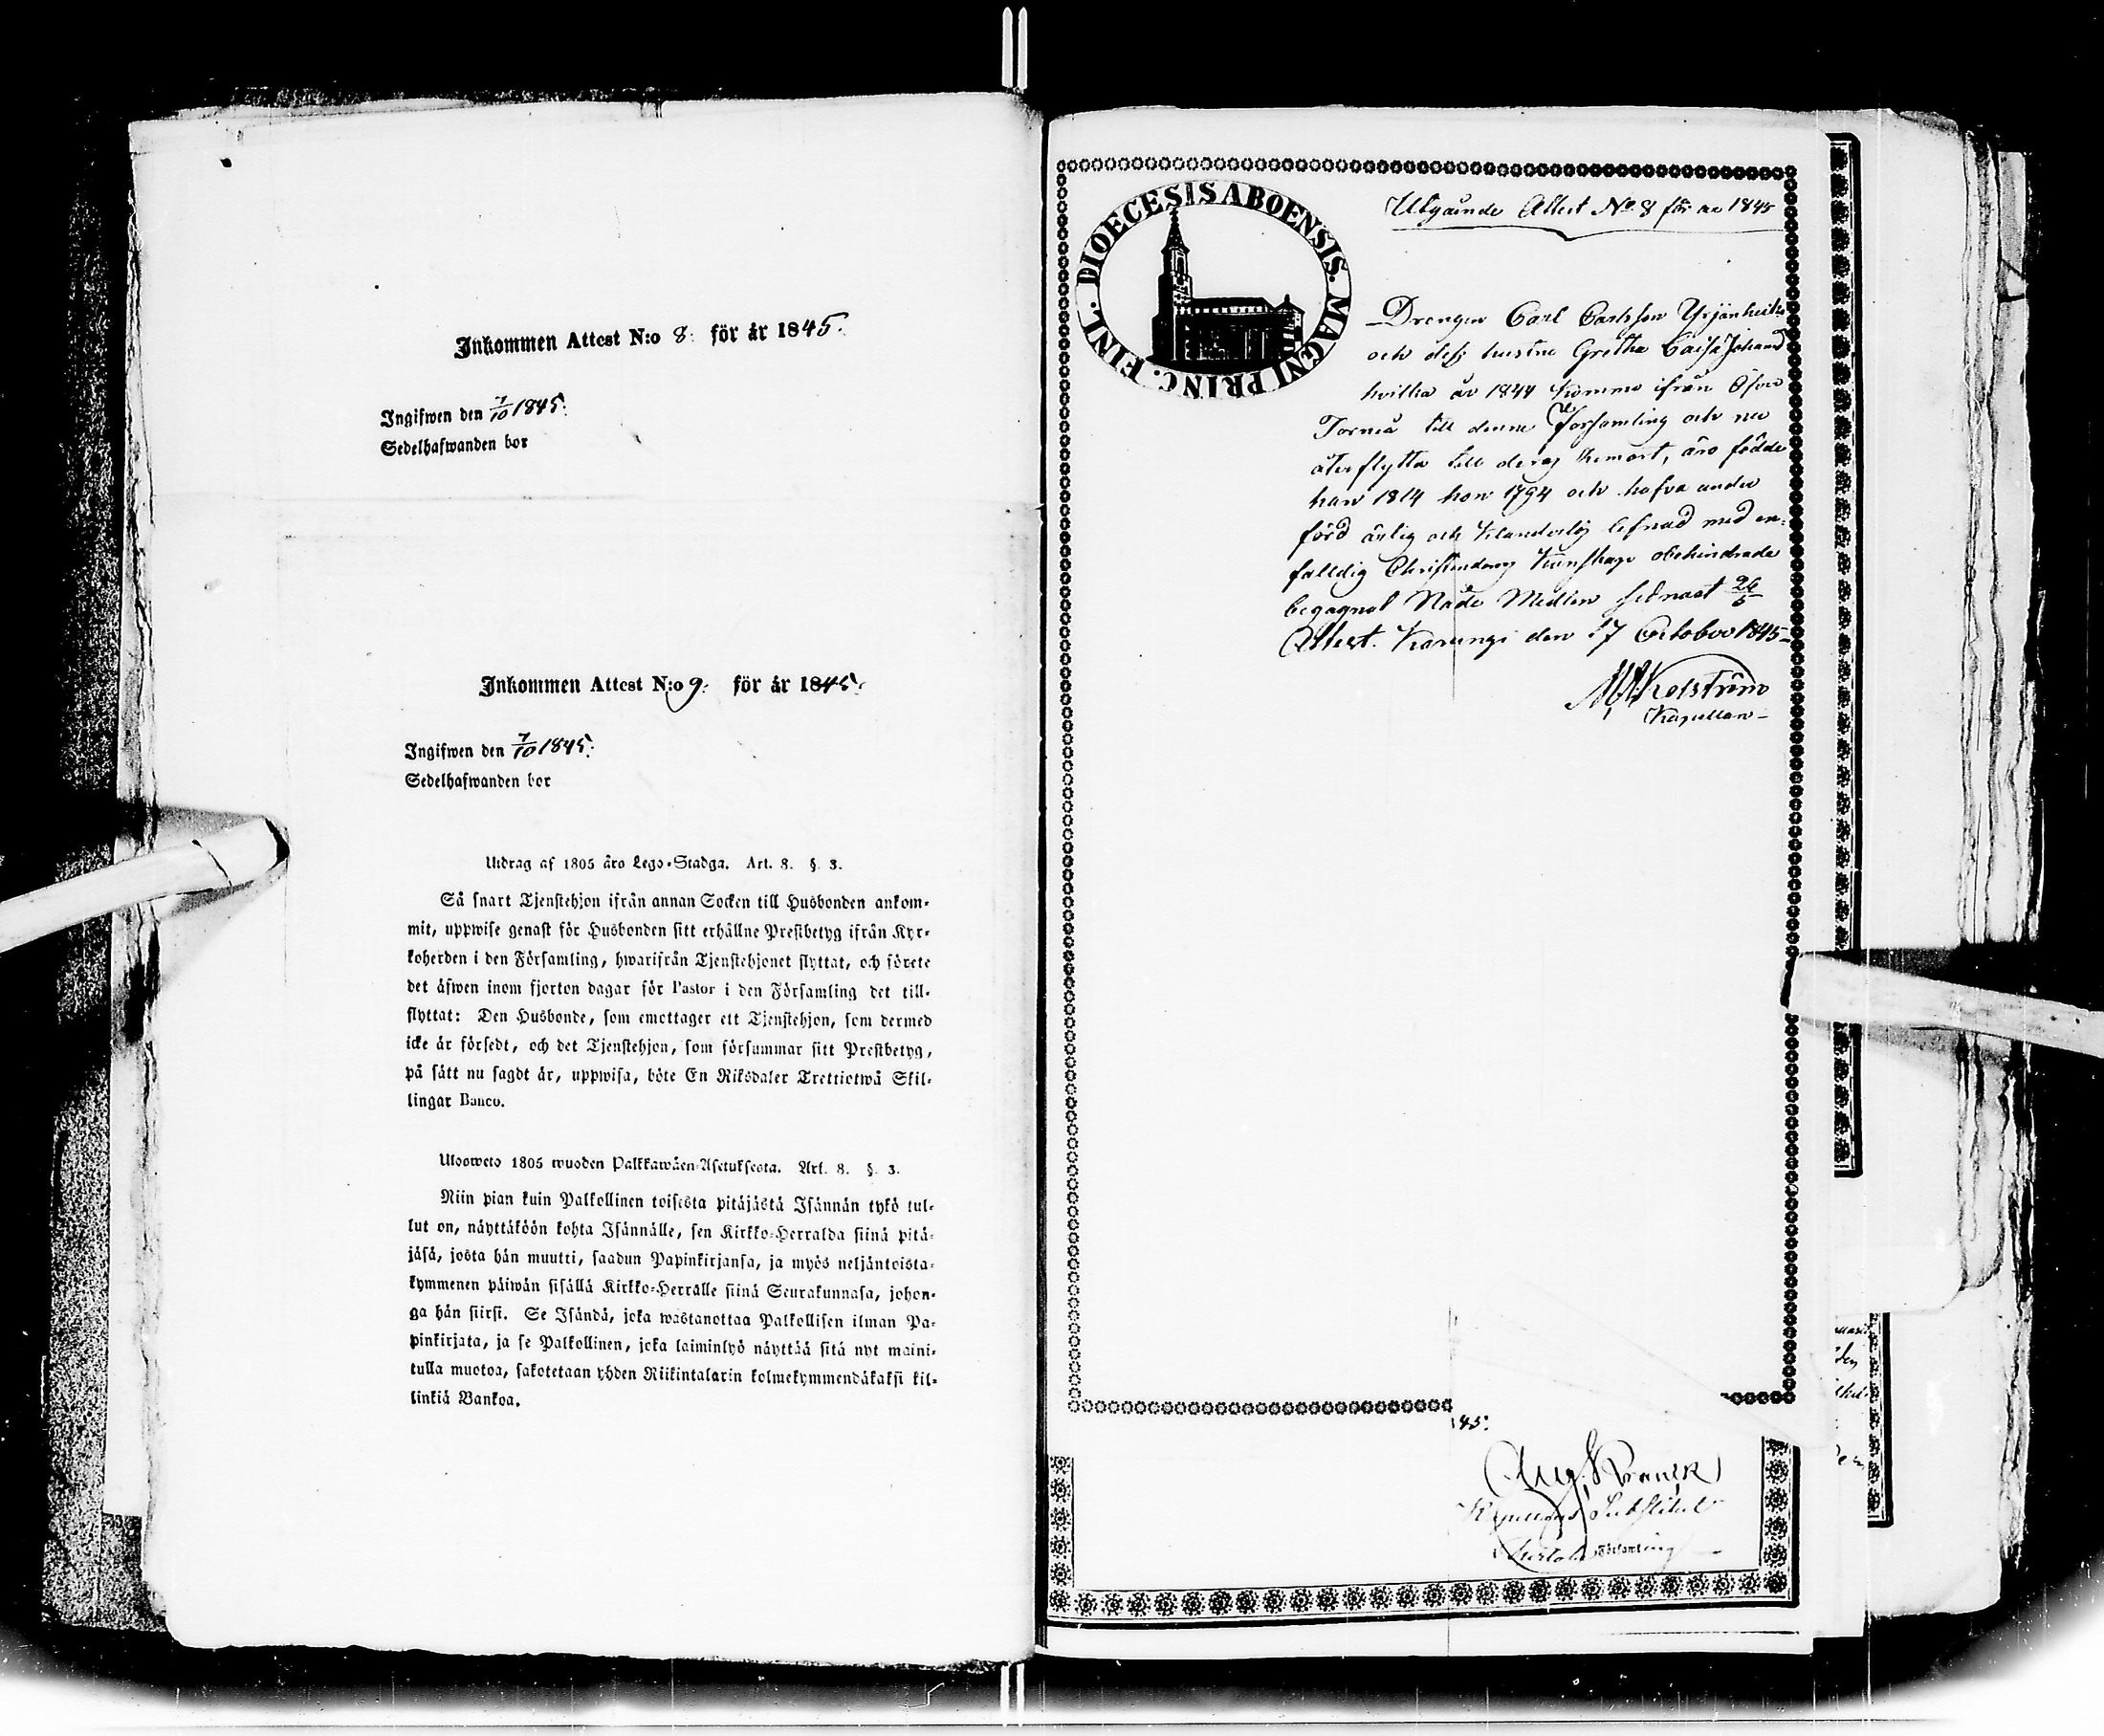 Inkommen Attest N:o 8. för år 1845.
Ingifwen den 7/10 1845.
Sedelhafwanden bor
Inkommen Attest N:o 9. för år 1845.
Ingifwen den 7/10 1845.
Sedelhafwanden bor
Utdrag af 1805 års Lego-Stadga. Art. 8. §. 3.
Så snart Tjenstehjon ifrån annan Socken till Husbonden ankom-
mit, uppwise genast för Husbonden sitt erhållne Prestbetyg ifrån Kyr-
koherden i den Församling, hwarifrån Tjenstehjonet flyttat, och förete
det äfwen inom fjorton dagar för Pastor i den Församling det till-
flyttat: Den Husbonde, som emottager ett Tjenstehjon, som dermed
icke är försedt, och det Tjenstehjon, som försummar sitt Prestbetyg,
på sätt nu sagdt är, uppwisa, böte En Riksdaler Trettiotwå Skil-
lingar Banco.
Ulosweto 1805 wuoden Palkkawäen-Asetuksesta. Art. 8. §. 3.
Niin pian kuin Palkollinen toisesta pitäjästä Isännän tykö tul-
lut on, näyttäköön kohta Isännälle, sen Kirkko-Herralda siinä pitä-
jäsä, josta hän muutti, saadun Papinkirjansa, ja myös neljäntoista-
kymmenen päiwän sisällä Kirkko-Herralle siinä Seurakunnasa, johon-
ga hän siirsi. Se Isändä, joka wastanottaa Palkollisen ilman Pa-
pinkirjata, ja se Palkollinen, joka laiminlyö näyttää sitä nyt maini-
tulla muotoa, sakotetaan yhden Riikintalarin kolmekymmendäkaksi kil-
linkiä Bankoa.
DIOECESIS ABOENSIS. MAGNI PRINC. FINL.
Utgående Attest No 8 för år 1845
Drengen Carl Carlsson Yrjänheikki
och dess hustru Gretha Caisa Johansd
hvilka år 1844 kommo ifrån Öfver
Torneå till denna Församling och nu
återflytta till deras hemort, äro födde
han 1814 hon 1794 och hafva under
förd ärlig och klanderlös lefnad med en-
falldig Christendoms kunskap obehindrade
begagnat Nåde Medlen sednast 26/5
Attest. Karungi den 17 October 1845
Kapellan
45.
Aug. Franck
Substitut
Församling